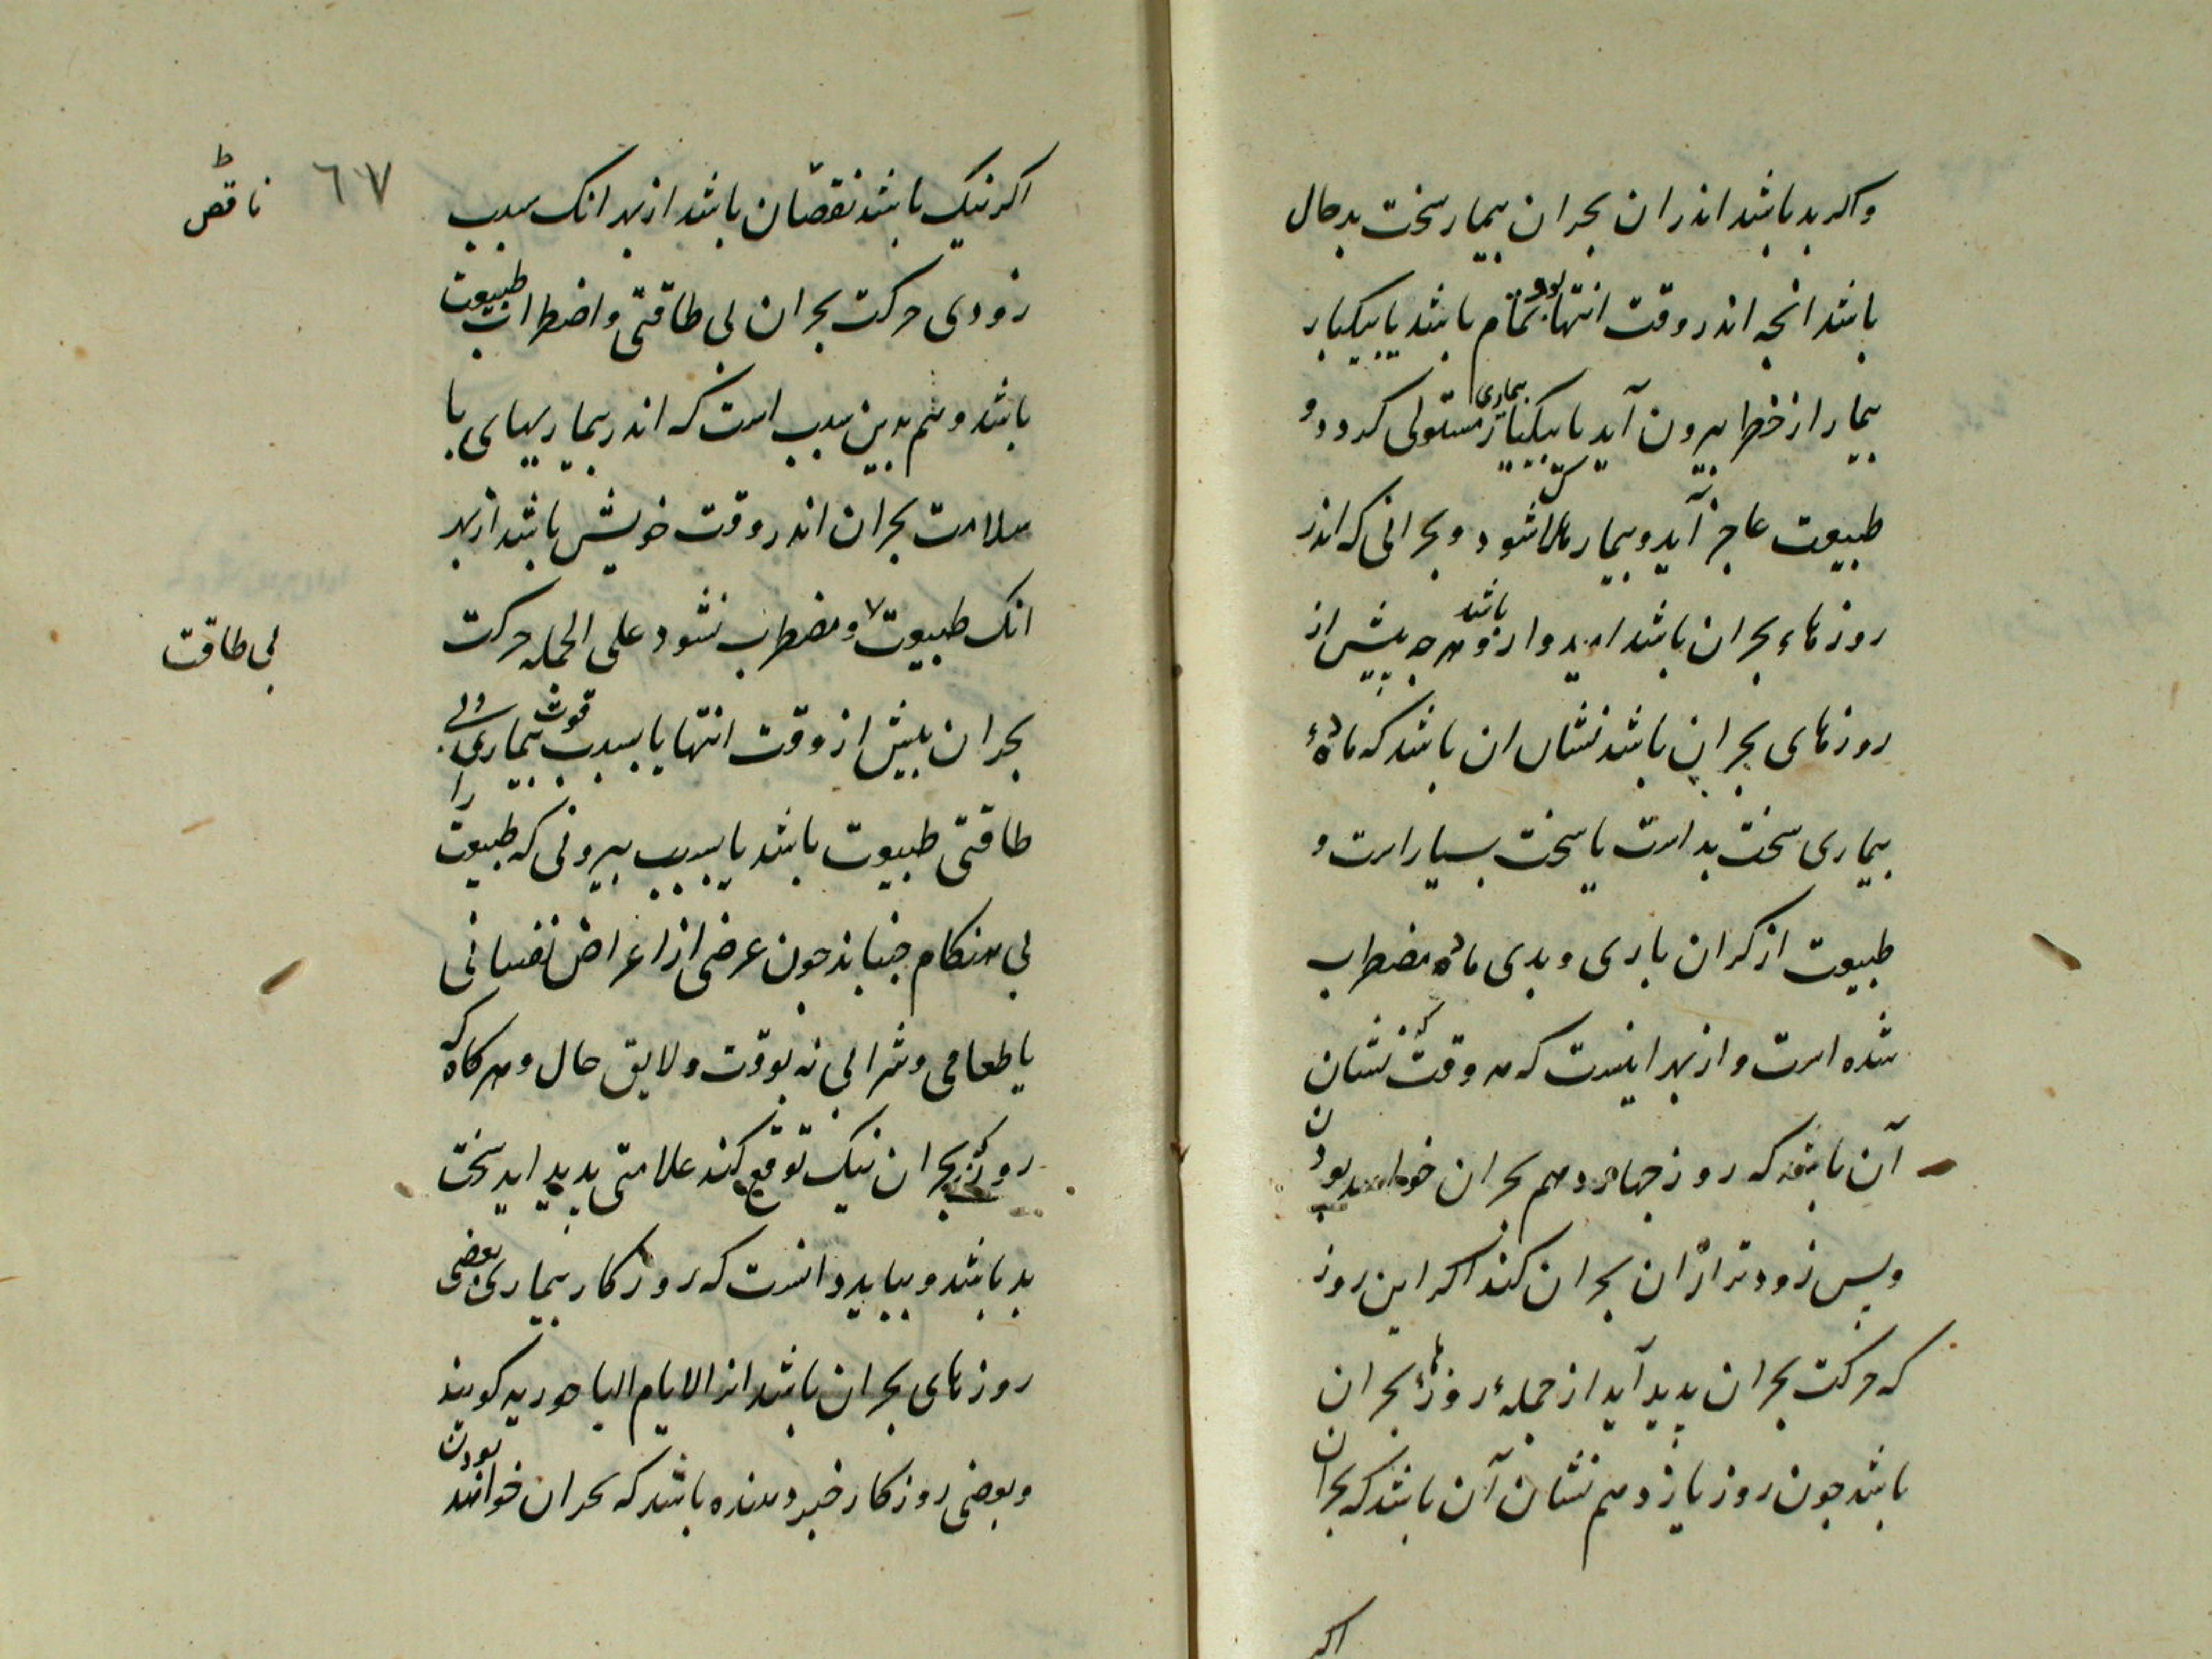 واکر بد باشد اندران بحران بیمار سخت بد حال
باشد انجه اندر وقت انتها بود تمام باشد یا بیکبار
بیمار از خطر بیرون آید یا بیکبار بیماری مستولی کردد و
طبیعت عاجز آید و بیمار هلاک شود و بحرانی که اندر
روزهاء بحران باشد امیدوارتر باشد و هرجه بیش از
روزهای بحران باشد نشان ان باشد که مادهٔ
بیماری سخت بد است یا سخت بسیار است و
طبیعت از کران باری و بدی ماده مضطرب
شده است و از بهر اینست که هر وقت که نشان
آن باشد که روز جهاردهم بحران خواهد بودن
وبس زودتر ازان بحران کند اکر این روز
که حرکت بحران بدید آید از جملهٔ روزهاء بحران
باشد جون روز یازدهم نشان آن باشد که بحران
اکر
اکر نیک باشد نقصان باشد از بهر انک بسبب
زودی حرکت بحران بی طاقتی و اضطراب طبیعت
باشد و هم بدین سبب است که اندر بیماریهای با
سلامت بحران اندر وقت خویش باشد از بهر
انک طبیعت و مضطرب نشود علی الجمله حرکت
بحران بیش از وقت انتها یا بسبب قوت بیماری و بی
طاقتی طبیعت باشد یا بسبب بیرونی که طبیعت را
بی هنکام جنباند جون عرضی از اعراض نفسانی
یا طعامی و شرابی نه بوقت و لایق حال و هرکاه که
روز بحران نیک توقع کند علامتی بدید اید سخت
بد باشد و بباید دانست که روزکار بیماری بعضی
روزهای بحران باشد انرا الایام الباحوریه کویند
وبعضی روزکار خبر دهنده باشد که بحران خواهد بودن
٦٧
ناقص
بی طاقت